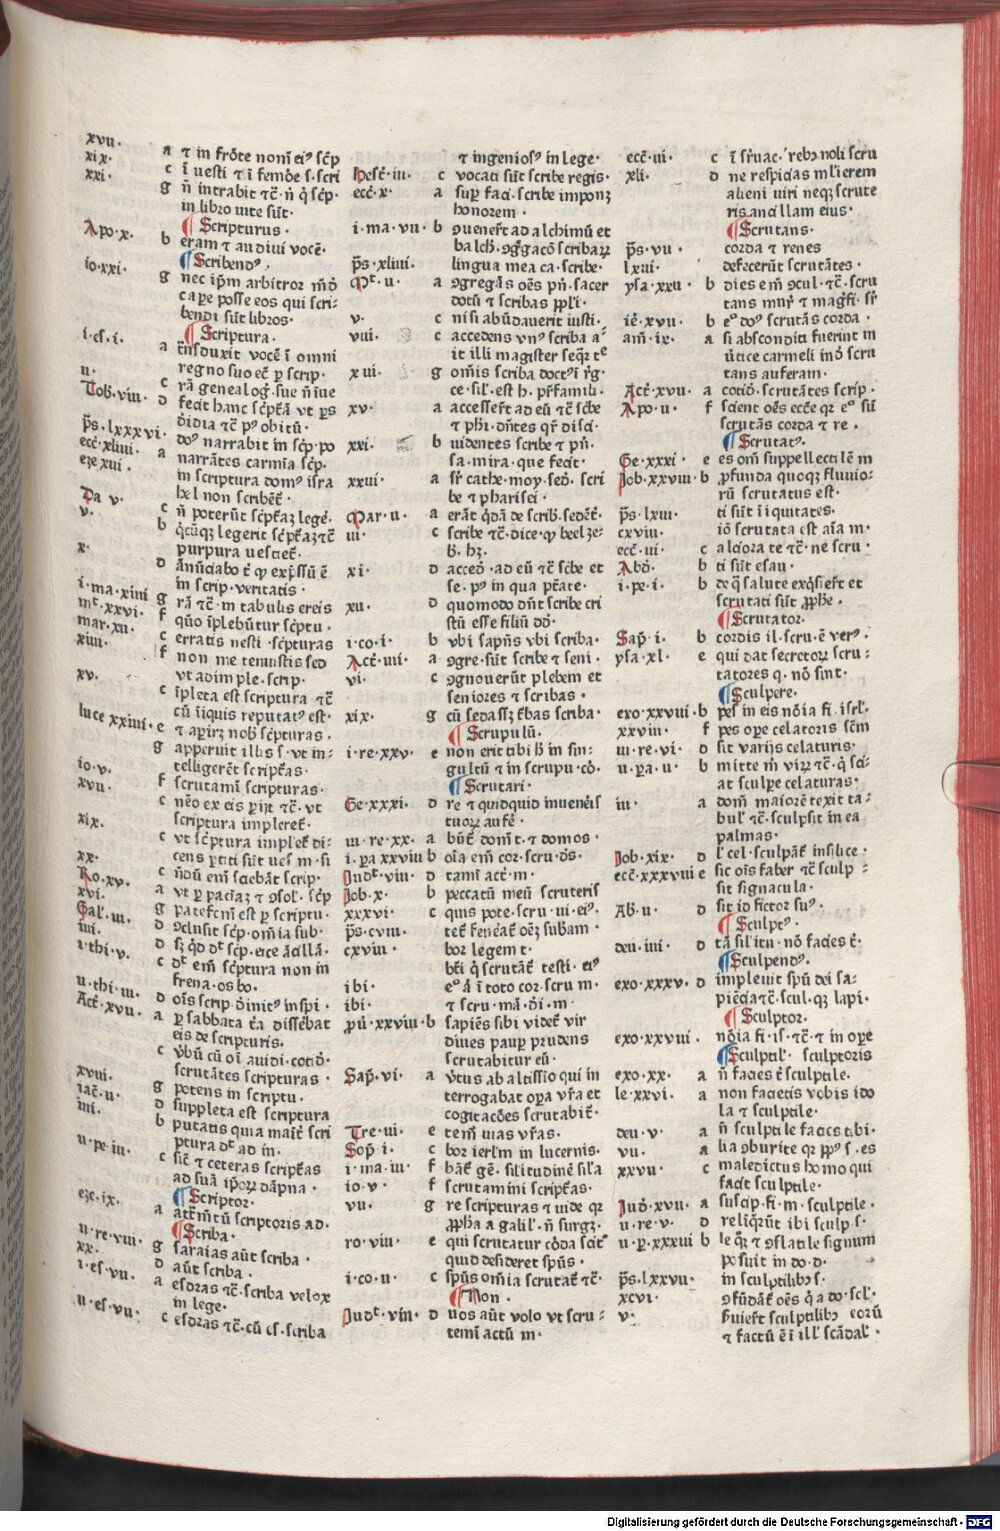 xvii·
xix· a ⁊ in frōte nom̄ eiꝰ sc̄p
xxi· c ī uesti ⁊ ī femōe s·scri
g n̄ intrabit ⁊c̄·n̄ q̇ sc̄p·
in libro uite sūt·
¶ Scripturus·
Apo·x· b eram ⁊ audiui vocē·
¶ Scribendꝰ·
io·xxi· g nec ip̄m arbitror m̄o
capere posse eos qui scri-
bendi sūt libros·
¶ Scriptura·
i·es·i· a trāsduxit vocē ī omni
regno suo ec̄ ꝑ scrip·
ii· c rā genealog̓·sue n̄ iue
Tob·viii· d fecit hanc sc̄ptā vt ꝑs
ōidia ⁊c̄ pꝰ obitū·
p̄s·lxxxvi· doꝰ narrabit in sc̄p·po
ecc̄·xliiii· a narrātes carmīa sc̄p·
eze·xiii· in scriptura domꝰ isra
hel non scribēt̄·
Da v· c n̄ poterūt sc̄ptaꝫ legē·
v· b q̇cūqꝫ legerit sc̄ptaꝫ ⁊c̄
purpura uestiet̄·
x· d ānūciabo t̄ ꝙ exp̄ssū ē
in scrip·veritatis·
i·ma·xiiii g rā ⁊c̄·m tabulis ereis
mt̄·xxvi· f quō īplebūtur sc̄ptu·
mar·xii· c erratis nesti·sc̄pturas
xiiii· f non me tenuistis sed
vt adimple·scrip·
xv· c īpleta est scriptura ⁊c̄
cū īiquis reputatꝰ est·
luce xxiiii·e ⁊ aꝑirꝫ nob̄ sc̄pturas·
g apperuit illis s·vt in-
telligerēt scriptas·
io·v· f scrutamī scripturas·
xvii· c nēo ex eis ꝑijt ⁊c̄·vt
scriptura impleret̄·
xix· c vt sc̄ptura implet̄ di-
cens ꝑtiti sūt ues̄ m·si
xx· c n̄dū em̄ sciebāt scrip·
Ro·xv· a vt ꝑ paciaꝫ ⁊ ꝯsol̓·sc̄p
xvi· g patefcm̄ est ꝑ scriptu·
Gal̓·iii· d ꝯclusit sc̄p·om̄ia sub·
iiii· d sꝫ q̇d dt̄ sc̄p·eice ācillā·
i·thi·v· c dt̄ em̄ sc̄ptura non in
frena·os bo·
ii·thi·iii· d oīs scrip·dīnitꝰ inspi·
Act̄·xvii· a ꝑ sabbata t̄a disserebat
eis de scripturis·
c v̓bū cū oī auidi·cotid̄·
scrutātes scripturas·
xviii· g potens in scriptu·
iac̄·ii· d suppleta est scriptura
iiii· b putatis quia inait̄ scri
ptura dt̄ ad in·
ii·pe·iii· c sic̄ ⁊ ceteras scriptas
ad suā ip̄oꝝ dāpna·
¶ Scriptor·
eze·ix· a atr̄m̄tū scriptoris ad·
¶ Scriba·
ii·re·viii· g saraias aūt scriba·
xx· d aūt scriba·
i·es·vii· a esdras ⁊c̄·scriba velox
in lege·
ii·es·vii· c esdras ⁊c̄·cū es·scriba
⁊ ingeniosꝰ in lege·
Hest̄·iii· c vocati sūt scribe regis·
ecc̄·x· a suꝑ faci·scribe imponꝫ
honorem·
i·ma·vii· b ꝯuener̄t ad alchimū et
balch̄·ꝯg̓gacō scribaꝝ
p̄s·xliiii· lingua mea ca·scribe·
Mt̄·ii· a ꝯgregās oēs pn̄·sacer
dotū ⁊ scribas ppl̓i·
v· c nisi abūdauerit iusti·
viii· c accedens vnꝰ scriba a-
it illi magister seq̄r te
xiii· g om̄is scriba doctꝰ ī r̄g·
ce·sil̓·est h·pr̄famili·
xv· a accesser̄t ad eū ⁊c̄ sc̄be
⁊ phi·dn̄tes qr̄ disci·
xxi· b uidentes scribe ⁊ pn̄·
sa·mira·que fecit·
xxiii· a sr̄ cathe·moy·sed̄·scri
be ⁊ pharisei·
Mar·ii· a erāt q̇dā de scrib̄·sedēt̄·
iii· c scribe ⁊c̄·dice·ꝙ beelze-
b̄·hꝫ·
xi· d acced̄·ad eū ⁊c̄ sc̄be et
se·pꝰ in qua pt̄ate·
xii· d quomodo dn̄t scribe cri
stū esse filiū dd̄·
i·co·i· b vbi sapn̄s vbi scriba·
Act̄·iiii· a ꝯgre·sūt scribe ⁊ seni·
vi· c ꝯgnouerūt plebem et
seniores ⁊ scribas·
xix· g cū sedassꝫ t̄bas scriba·
¶ Scrupulū·
i·re·xxv· e non erit tibi h̄ in sin-
gultū ⁊ in scrupu·co̓·
¶ Scrutari·
Ge·xxxi· d re ⁊ quidquid inueneris
tuoꝝ aufē·
iii·re·xx· a būt̄ domū t·⁊ domos·
i·pa xxviii b oīa em̄ cor·scru·dn̄s·
Judt̄·viii· d tamī act̄·m·
Job·x· b peccatū meū scruteris
xxxvi· c quis pote·scru·ui·eiꝰ·
p̄s·cviii· tet̄ feneat̄ oēꝫ subam·
cxviii· bor legem t·
bt̄i q̇ scrutāt̄ testi·eiꝰ
ibi· eꝰ ā ī toto cor·scru m·
ibi· ⁊ scru·mā·dī·m·
pu̓·xxviii·b sapiēs sibi videt̄ vir
diues pauꝑ prudens
scrutabitur eū·
Sap̄·vi· a v̓tus ab altissīo qui in
terrogabat oꝑa vr̄a et
cogitacōes scrutabit̄·
Tre·iii· e tem̄ uias vr̄as·
Sop̄ i· c bor ierl̓m in lucernis·
i·ma·iii· f hāt̄ gē·silitudinē sil̓a
io·v· f scrutamini scriptas·
vii· g re scripturas ⁊ uide qr
ꝓpha a galil̓·n̄ surgꝫ·
ro·viii· e qui scrutatur cōda scit̄
quid desideret spūs·
i·co·ii· c spūs om̄ia scrutat̄ ⁊c̄·
¶ Non·
Judt̄·viii· d uos aūt volo vt scru-
temī actū m·
ecc̄·iii· c ī sr̄uac̄·rebꝫ noli scru
xli· d ne respicias ml̓ierem
alieni uiri neqꝫ scrute
ris ancillam eius·
¶ Scrutans·
p̄s·vii· corda ⁊ renes
lxiii· defecerūt scrutātes·
ysa·xxii· b dies em̄ ꝯcul·⁊c̄·scru
tans mur̄ ⁊ mag̓fi·sr̄
ie̓·xvii· b eꝰ doꝰ scrutās corda·
am̄·ix· a si absconditi fuerint in
u̓tice carmeli in̄ scru
tans auferam·
Act̄·xvii· a cotid̄·scrutātes scrip·
Apo·ii· f scient oēs ecc̄e qr eꝰ sū
scrutās corda ⁊ re·
¶ Scrutatꝰ·
Ge·xxxi· e es om̄ suppellectilē m
Job·xxviii·b ꝓfunda quoqꝫ fluuio-
rū scrutatus est·
p̄s·lxiii· ti sūt īiquitates·
cxviii· iō scrutata est aīa m·
ecc̄·iii· c alciora te ⁊c̄·ne scru·
Abd̄· b ti sūt esau·
i·pe·i· b de q̇ salute exq̇sier̄t et
scrutati sūt ꝓphe·
¶ Scrutator·
Sap̄·i· b cordis il·scru·ē verꝰ·
ysa·xl· e qui dat secretoꝝ scru-
tatores q·nō sint·
¶ Sculpere·
exo·xxviii·b pes in eis nōīa fi·isrl̓·
xxviii· f pes oꝑe celatoris scm̄
iii·re·vi· d sit varijs celaturis·
ii·pa·ii· b mitte m̄ virꝫ ⁊c̄·q̇ sci-
at sculpe celaturas·
iii· a dom̄ maiorē texit ta-
bul̓ ⁊c̄·sculpsit in ea
palmas·
Job·xix· d l̓ cel·sculpāt̄ insilice·
ecc̄·xxxviii e sic oīs faber ⁊c̄ sculp-
sit signacula·
Ab̄·ii· d sit id fictor suꝰ·
¶ Sculptꝰ·
deu·iiii· d tā sil̓itu·nō facies t̄·
¶ Sculpendꝰ·
exo·xxxv· d impleuit spū dei sa-
piēcia ⁊c̄·scul·qꝫ lapi·
¶ Sculptor·
exo·xxviii· nōīa fi·is·⁊c̄·⁊ in oꝑe
¶ Sculptil̓· sculptoris
exo·xx· a n̄ facies t̄ sculptile·
le·xxvi· a non facietis vobis ido
la ⁊ sculptile·
deu·v· a n̄ sculptile facies tibi·
vii· a lia ꝯburite qr ppꝰ s·es
xxvii· c maledictus homo qui
facit sculptile·
Jud̄·xvii· a suscip·fi·m·sculptile·
ii·re·v· d reliq̄rūt ibi sculp s·
ii·p·xxxiii b le q̇ꝫ ⁊ ꝯflatile signum
posuit in do·d·
p̄s·lxxvii· in sculptilibꝫ s·
xcvi· ꝯfūdāt̄ oēs q̇ a do·scl̓·
v· h̄uier̄t sculptilibꝫ eorū
⁊ factū ē ī ill̓ scādal̓·
Digitalisierung gefördert durch die Deutsche Forschungsgemeinschaft - DFG